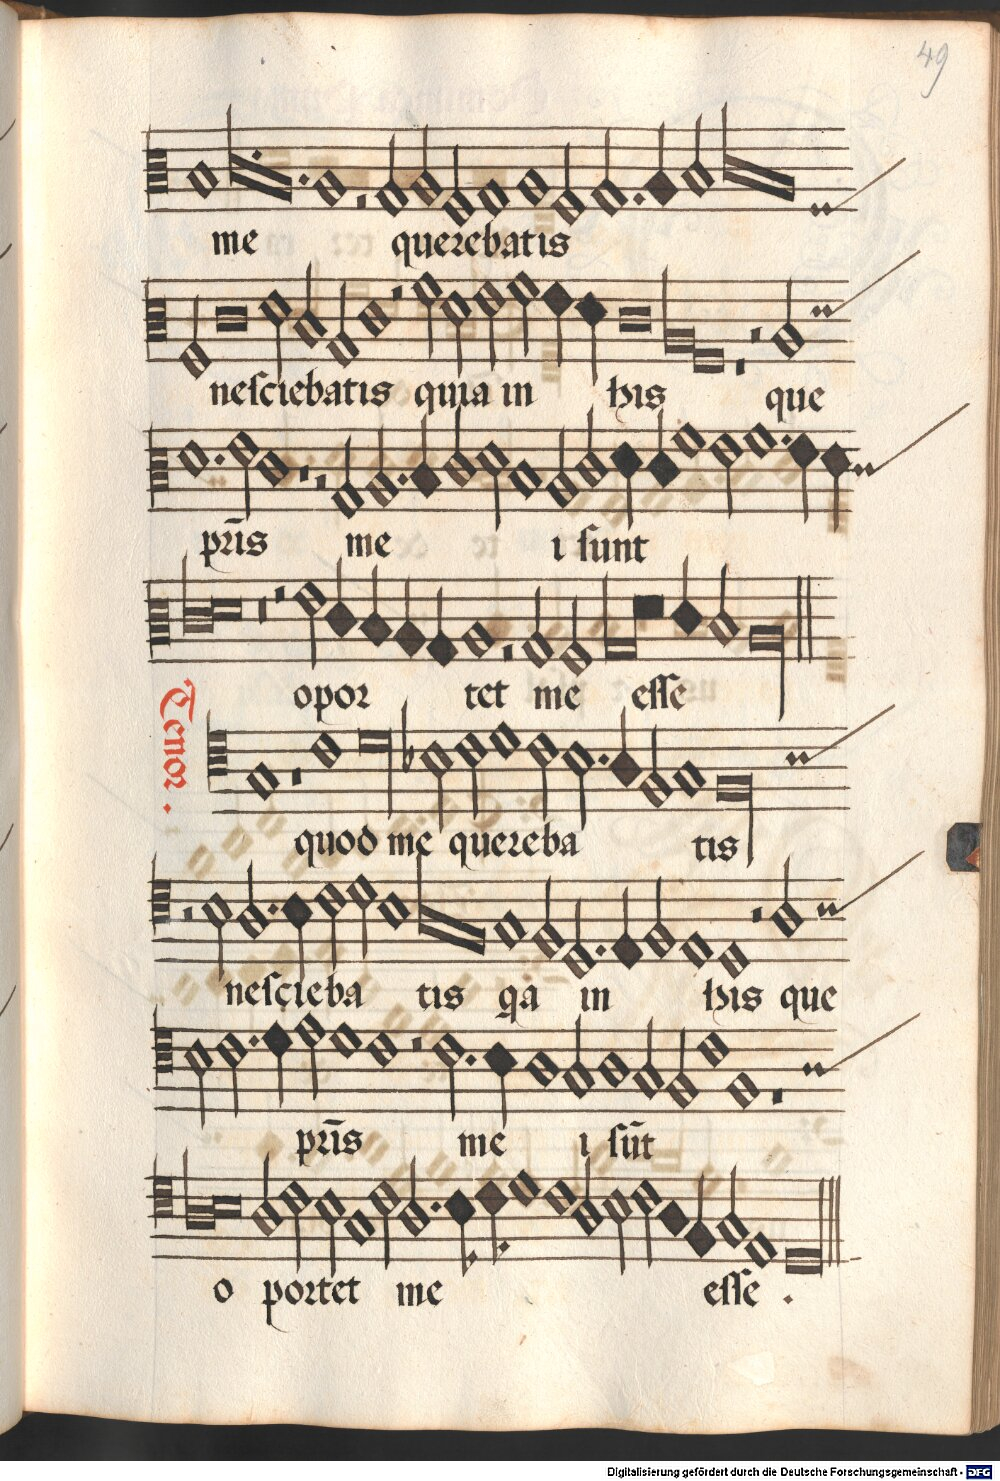 49
me querebatis
nesciebatis quia in his que
pr̄is me i sunt
opor tet me esse
Tenor.
quod me quereba tis
nescieba tis qa in his que
pr̄is me i sūt
o portet me esse .
Digitalisierung gefördert durch die Deutsche Forschungsgemeinschaft - DFG